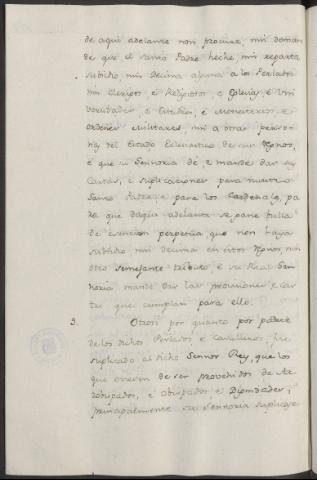 de aqui adelante non procure, nin deman
de que el Santo Padre heche, nin reparta
subsidio, nin Decima alguna a los Perlados
nin Clerigos é Religiosos é Iglesias é Uni
versidades, é Estudios, é Monesterios é
ordenes Militares, nin a otras perso
nas del Estado Eclesiastico de sus Regnos,
é que su Sennoria dé, é mande dar sus
Cartas, é suplicaciones para nuestro
Santo Padre, é para los Cardenales, pa
ra que daqui adelante se gane bulla
de esencion perpetua que non haya
subsidio nin decima en estos Regnos, nin
otro semejante tributo, é su Real Sen
noria mande dar las provisiones é car
tas que cumplan para ello.
3. Otrosi por quanto por parte
de los dichos Perlados é Cavalleros, fue
suplicado al dicho Sennor Rey, que los
que oviesen de ser proveidos de Ar
zobispados, é obispados, é Dignidades,
principalmente su Sennoria suplique